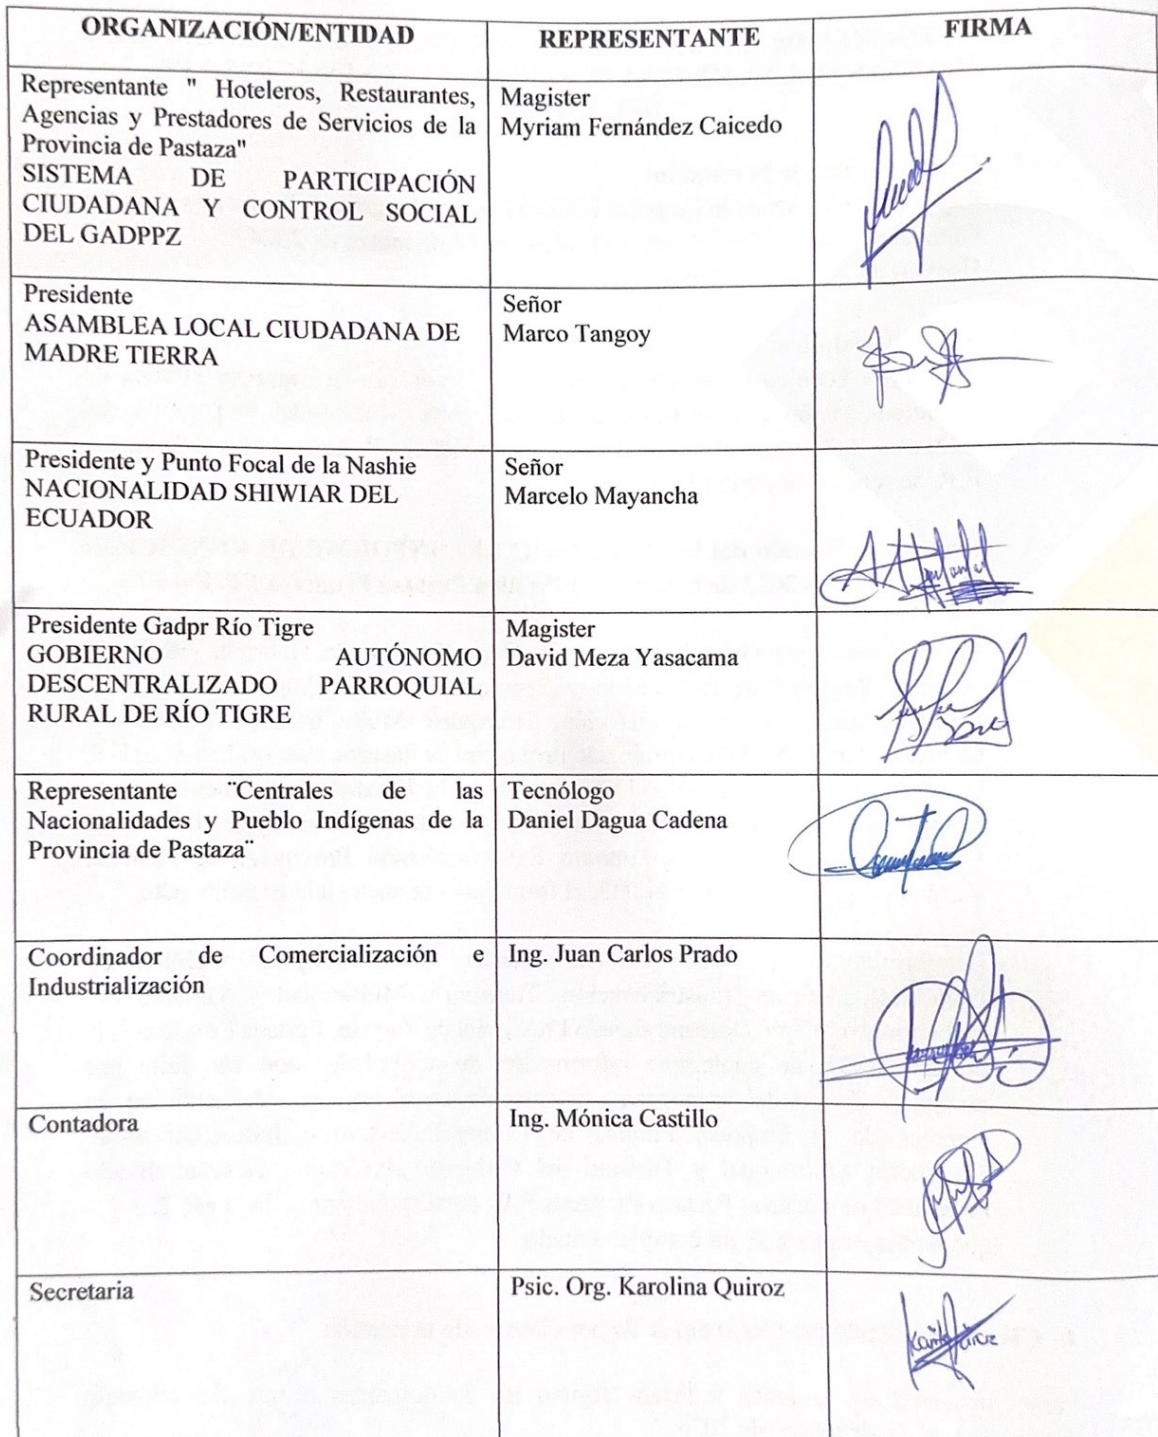 ORGANIZACIÓN/ENTIDAD
REPRESENTANTE
FIRMA
Representante " Hoteleros, Restaurantes,
Agencias y Prestadores de Servicios de la
Provincia de Pastaza"
SISTEMA DE PARTICIPACIÓN
CIUDADANA Y CONTROL SOCIAL
DEL GADPPZ
Magister
Myriam Fernández Caicedo
Presidente
ASAMBLEA LOCAL CIUDADANA DE
MADRE TIERRA
Señor
Marco Tangoy
Presidente y Punto Focal de la Nashie
NACIONALIDAD SHIWIAR DEL
ECUADOR
Señor
Marcelo Mayancha
Presidente Gadpr Río Tigre
GOBIERNO AUTÓNOMO
DESCENTRALIZADO PARROQUIAL
RURAL DE RÍO TIGRE
Magister
David Meza Yasacama
Representante ¨Centrales de las
Nacionalidades y Pueblo Indígenas de la
Provincia de Pastaza¨
Tecnólogo
Daniel Dagua Cadena
Coordinador de Comercialización e
Industrialización
Ing. Juan Carlos Prado
Contadora
Ing. Mónica Castillo
Secretaria
Psic. Org. Karolina Quiroz